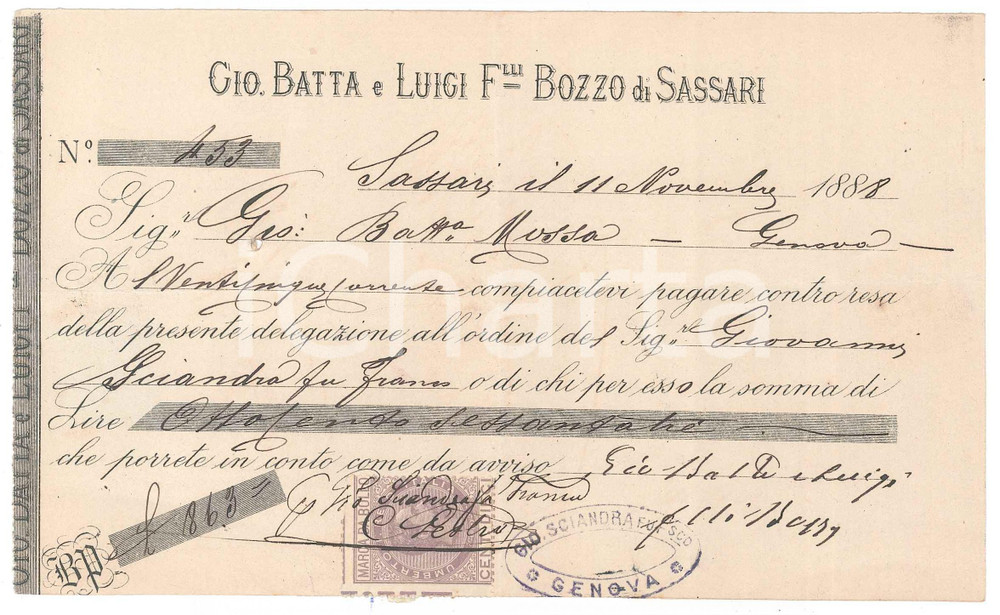 GIO. BATTA e LUIGI Flli BOZZO di SASSARI
N.° 453
Sassari il 11 Novembre 1888
Sig.r Gio: Batta Mossa — Genova —
Al Venticinque corrente compiacetevi pagare contro resa
della presente delegazione all'ordine del Sig.re Giovanni
Sciandra fu Franco o di chi per esso la somma di
Lire Ottocento sessantatre —
che porrete in conto come da avviso Gio Batta e Luigi
flli Bozzo
£ 863
BP
Sciandra fu Franco
MARCA DA BOLLO
UMBERTO
CENT. DIECI
GIO. SCIANDRA FU F.SCO
GENOVA
GIO. BATTA e LUIGI Flli BOZZO di SASSARI
iCharta